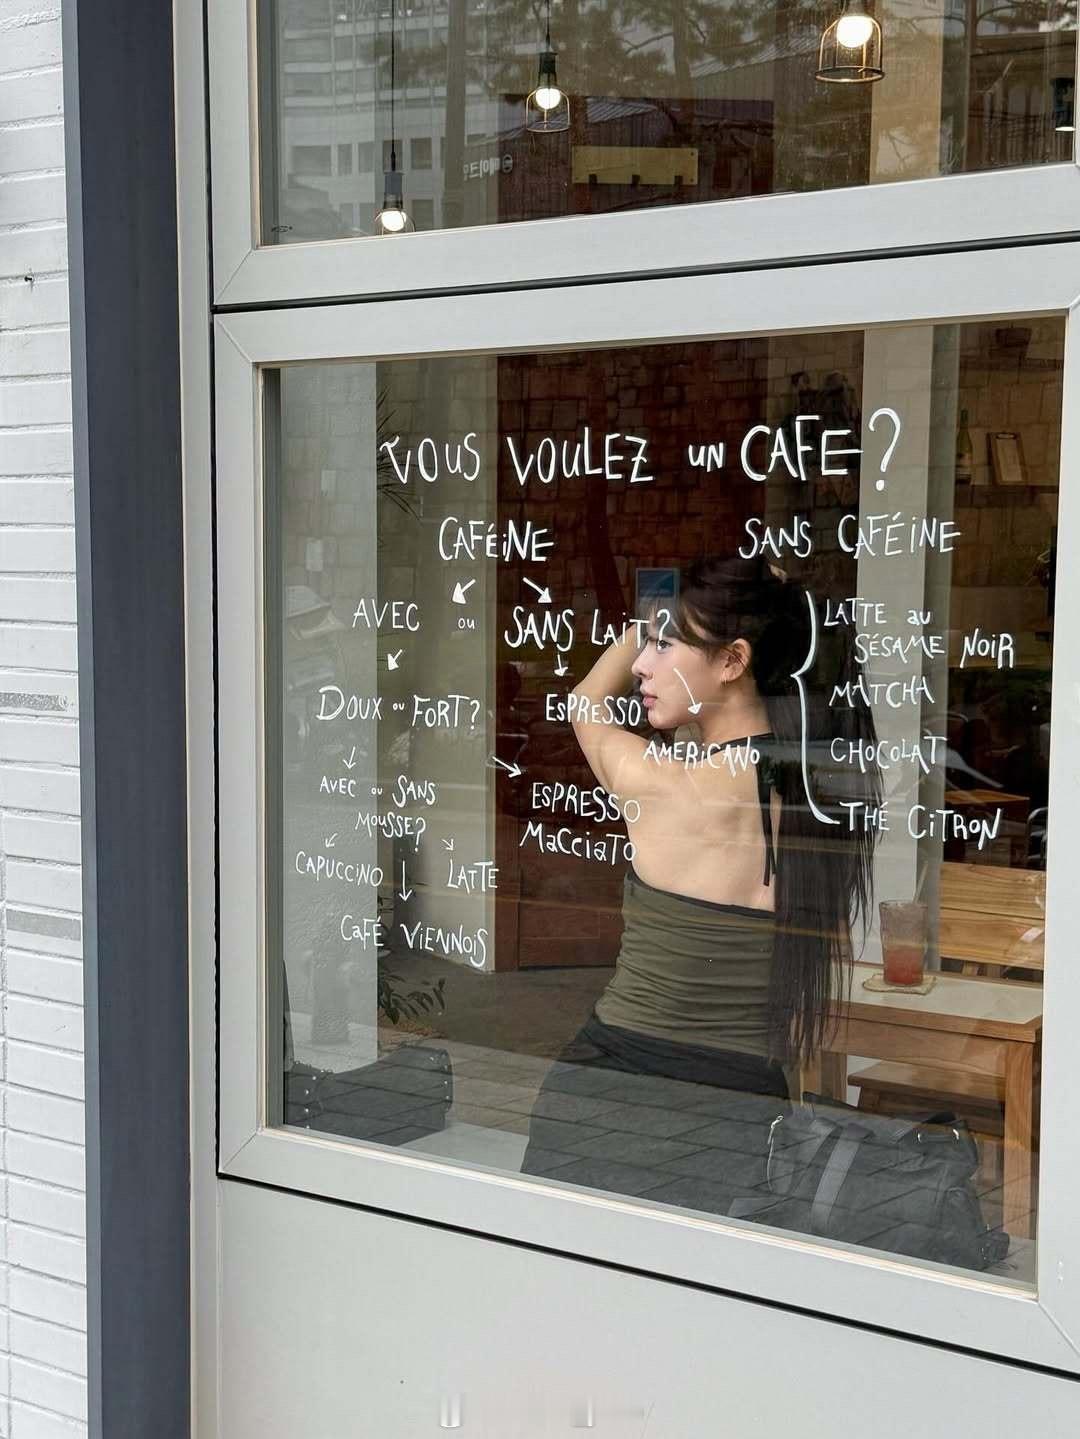 VOUS VOULEZ UN CAFE?
CAFÉiNE
SANS CAFÉiNE
AVEC ou SANS LAiT?
DOUX ou FORT?
ESPRESSO
AMERiCANO
AVEC ou SANS
MOUSSE?
ESPRESSO
MacciaTo
CAPUCCiNO
LATTE
CaFÉ ViENNOiS
LATTE au
SÉSAME NOiR
MATCHA
CHOCOLAT
THÉ CiTRON